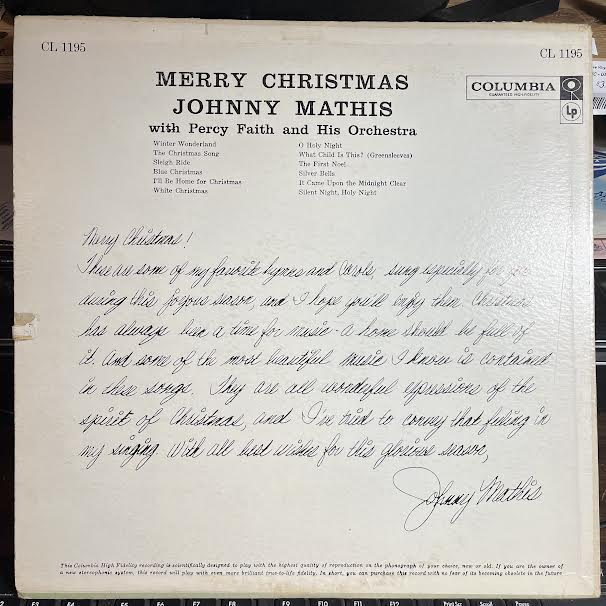 CL 1195
CL 1195
MERRY CHRISTMAS
JOHNNY MATHIS
with Percy Faith and His Orchestra
COLUMBIA
GUARANTEED HIGH FIDELITY
Lp
Winter Wonderland
The Christmas Song
Sleigh Ride
Blue Christmas
I'll Be Home for Christmas
White Christmas
O Holy Night
What Child Is This? (Greensleeves)
The First Noel
Silver Bells
It Came Upon the Midnight Clear
Silent Night, Holy Night
Merry Christmas!
These are some of my favorite hymns and Carols, sung especially for you
during this joyous season, and I hope you'll enjoy them. Christmas
has always been a time for music - a home should be full of
it. And some of the most beautiful music I know is contained
in these songs. They are all wonderful expressions of the
spirit of Christmas, and I've tried to convey that feeling in
my singing. With all best wishes for this glorious season,
Johnny Mathis
This Columbia High Fidelity recording is scientifically designed to play with the highest quality of reproduction on the phonograph of your choice, new or old. If you are the owner of
a new stereophonic system, this record will play with even more brilliant true-to-life fidelity. In short, you can purchase this record with no fear of its becoming obsolete in the future
F9 F10 F11 F12